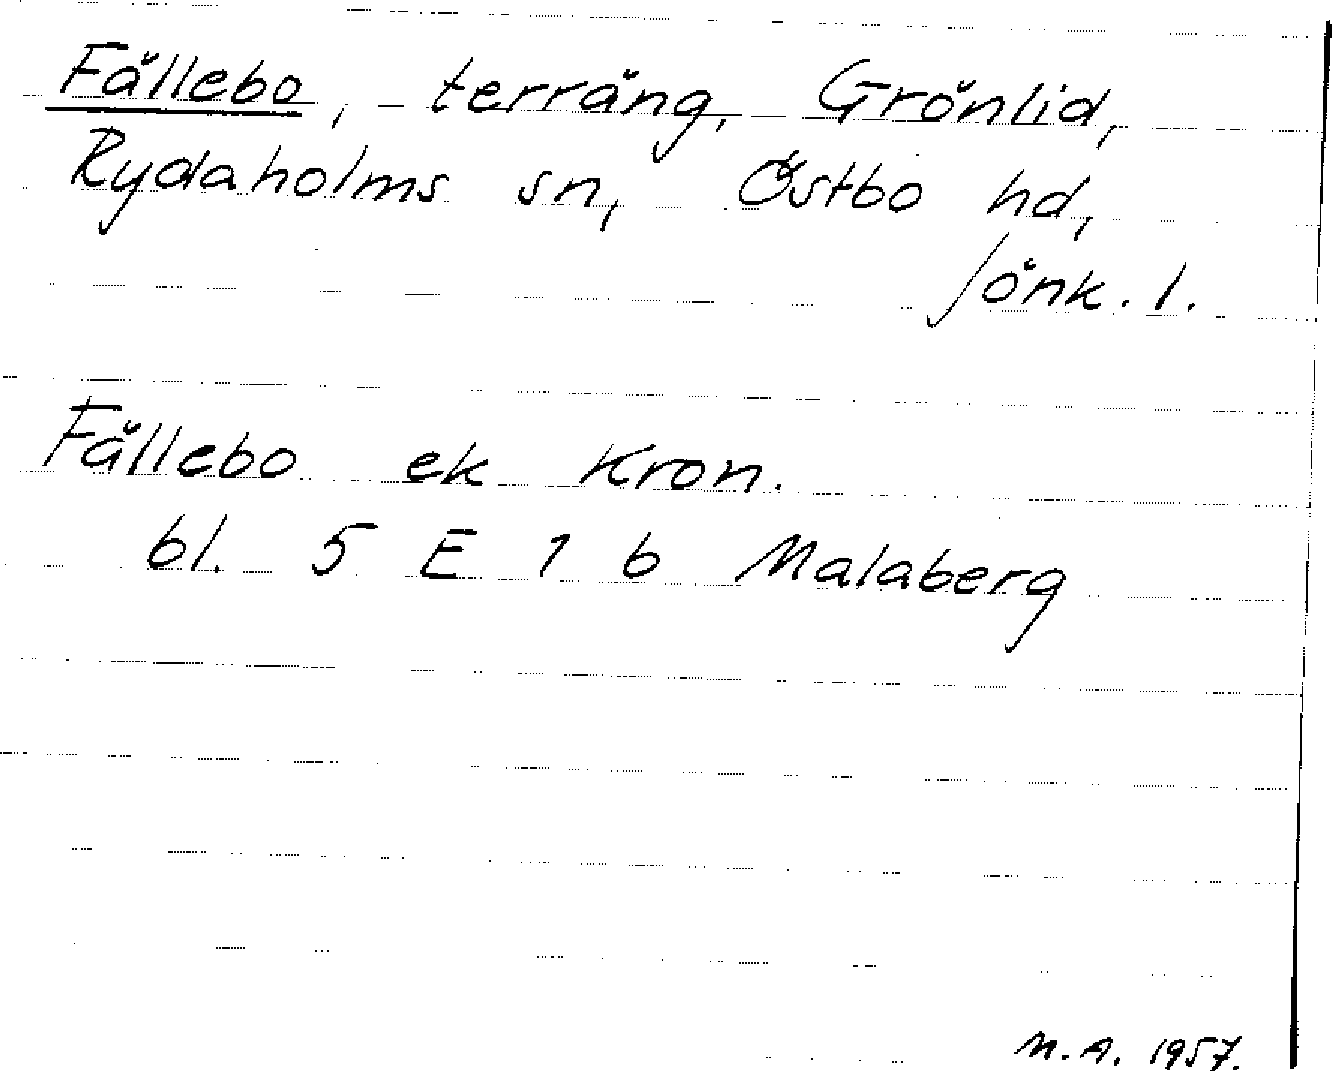 Fällebo, terräng, Grönlid,
Rydaholms sn, Östbo hd,
Jönk. l.
Fällebo ek Kron.
bl. 5 E 1 b Malaberg
M.A. 1957.